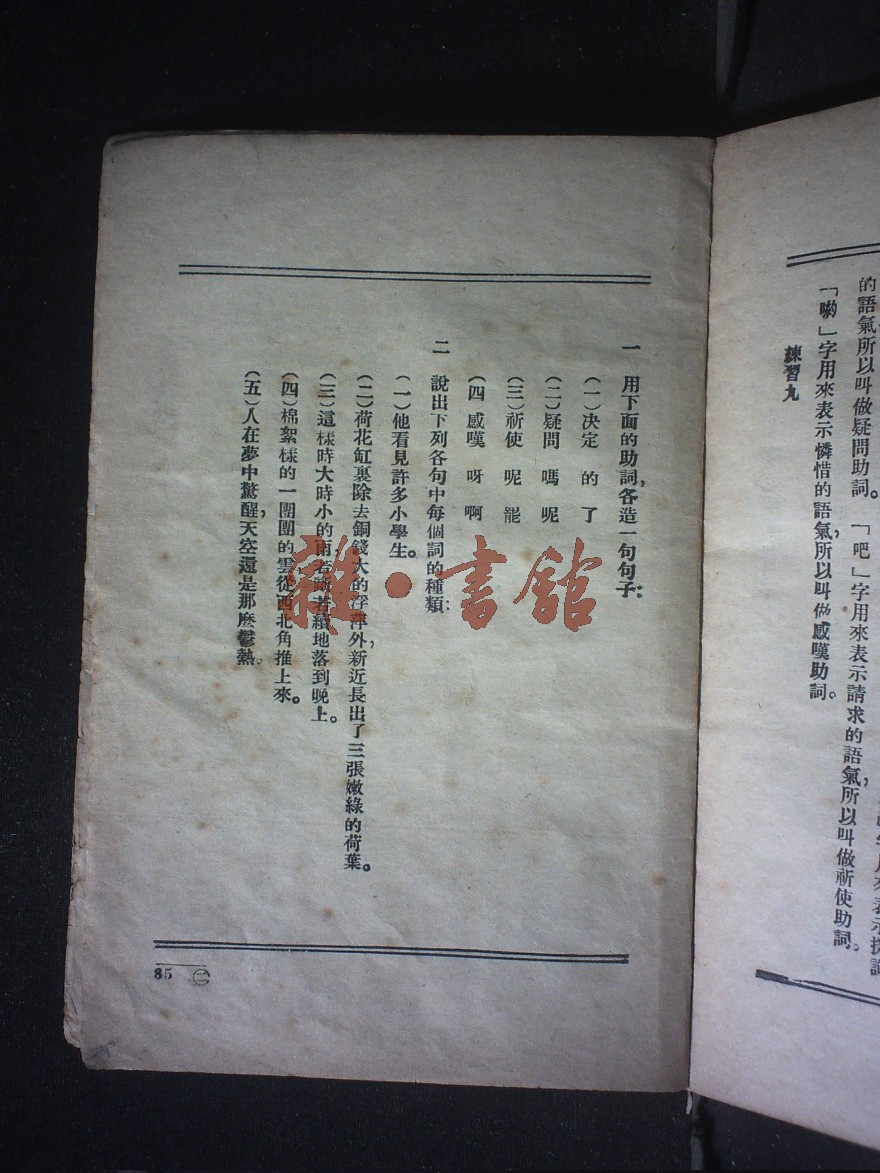 的語氣所以叫做疑問助詞。「吧」字用來表示請求的語氣,所以叫做祈使助詞。
「喲」字用來表示憐惜的語氣,所以叫做感嘆助詞。
練習九
一 用下面的助詞,各造一句句子:
(一)決定 的 了
(二)疑問 嗎 呢
(三)祈使 呢 罷
(四)感嘆 呀 啊
二 說出下列各句中每個詞的種類:
(一)他看見許多小學生。
(二)荷花缸裏除去銅錢大的浮萍外,新近長出了三張嫩綠的荷葉。
(三)這樣時大時小的雨若斷若續地落到晚上。
(四)棉絮樣的一團團的雲從西北角推上來。
(五)人在夢中驚醒,天空還是那麽鬱熱。
85 ㊁
雜·書館